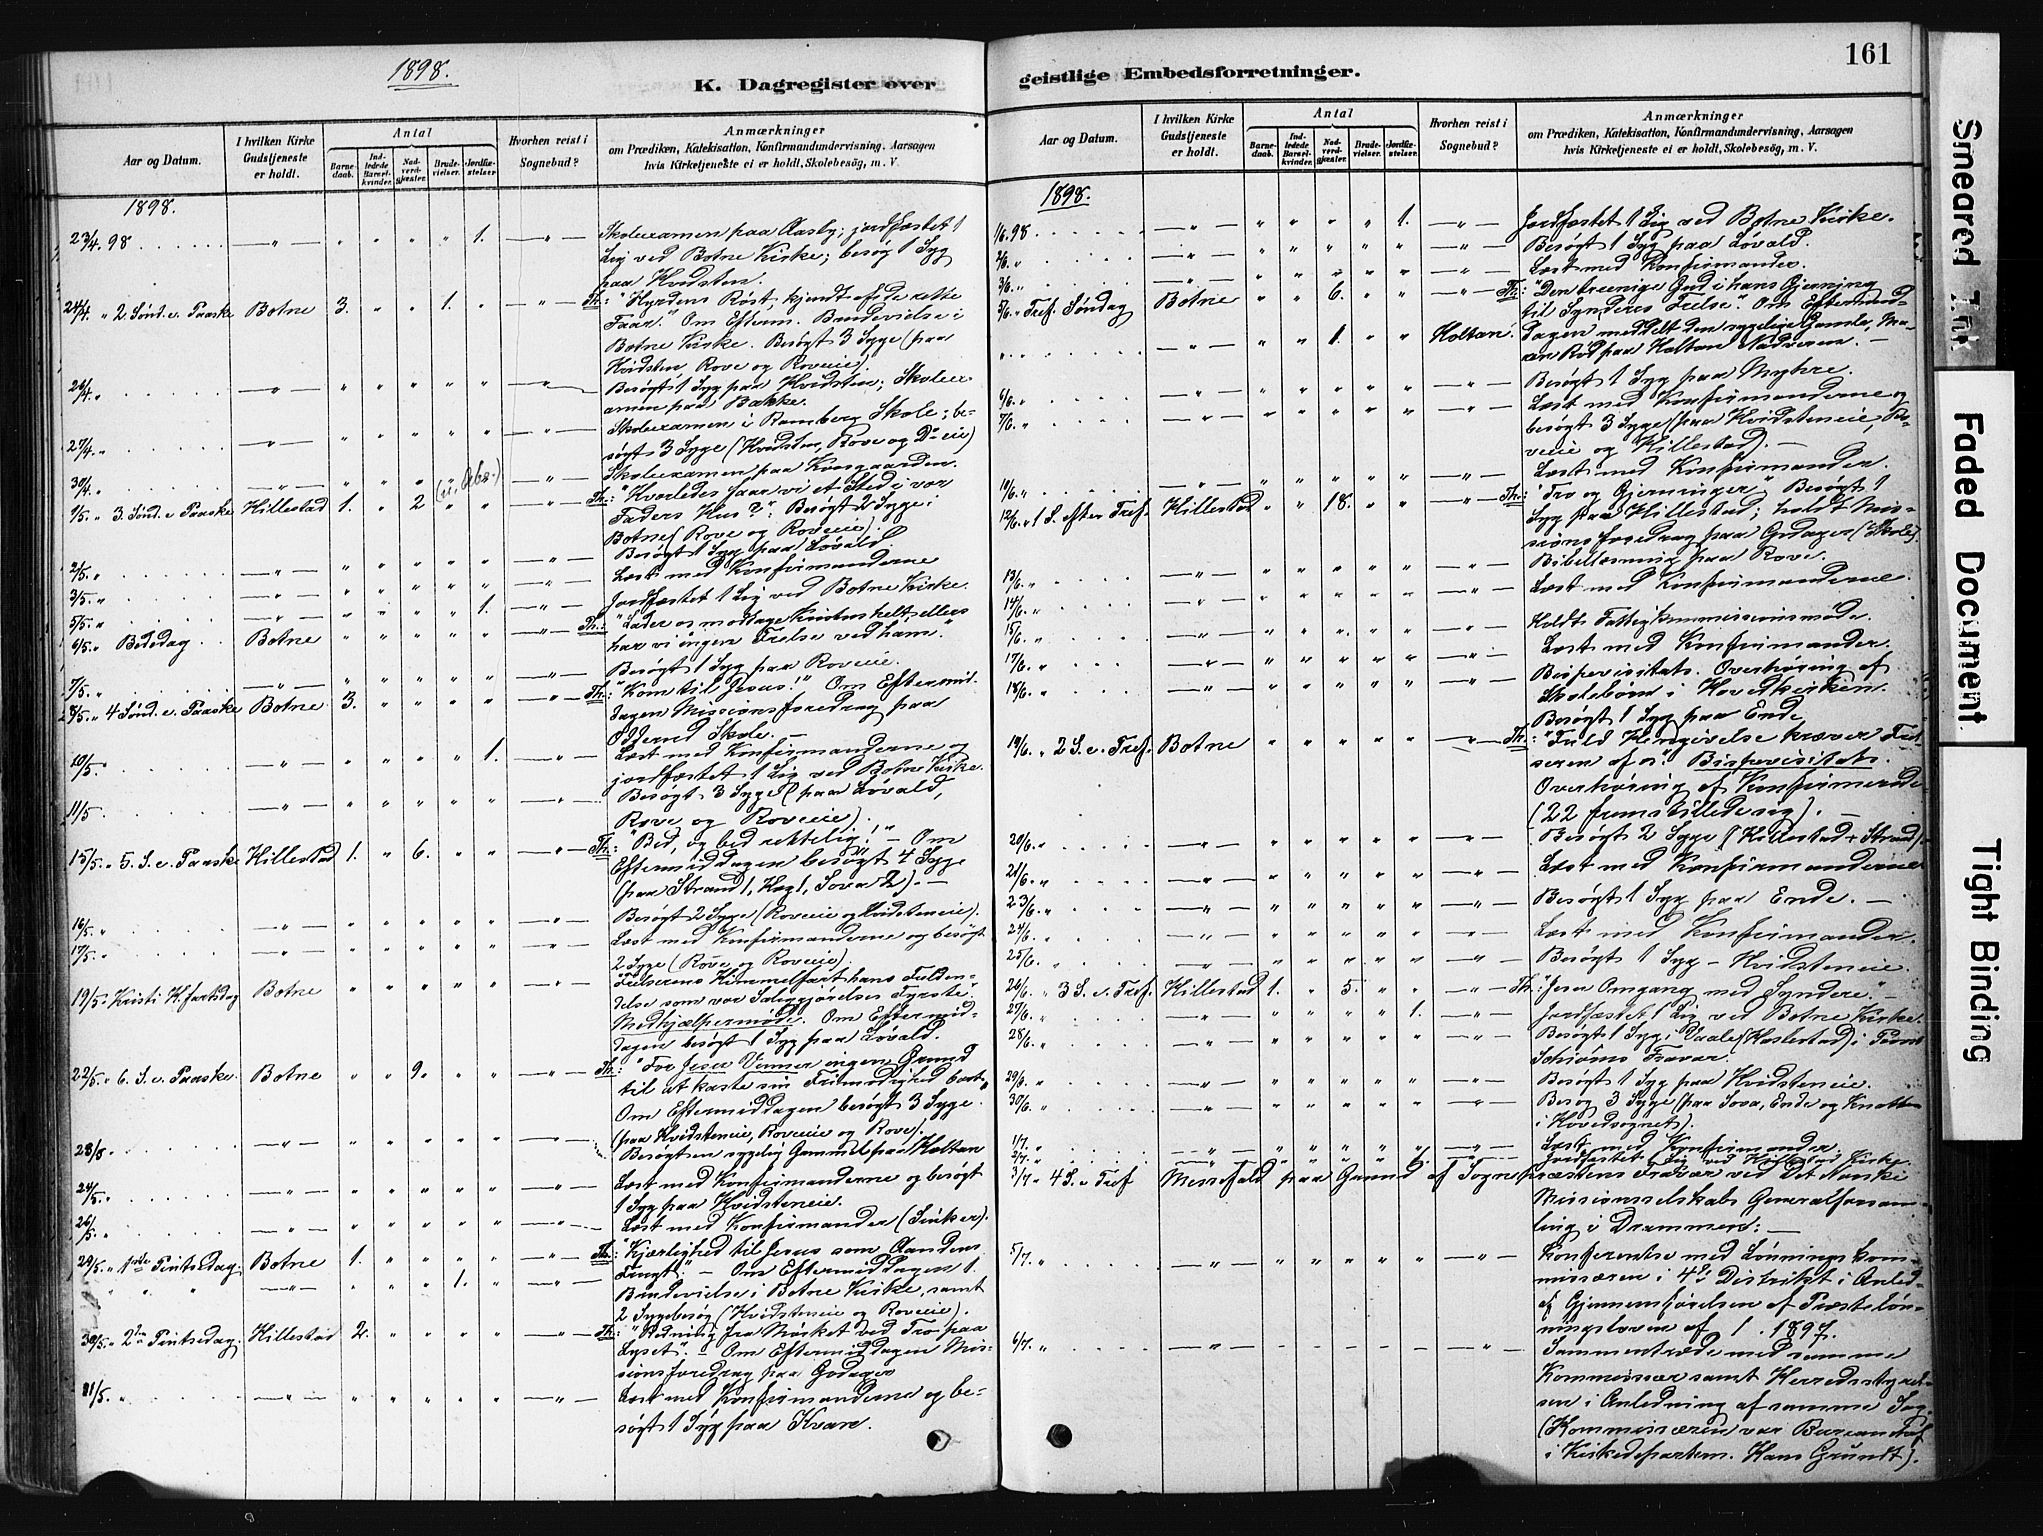 1898.
K. Dagregister over
Aar og Datum.
I hvilken Kirke Gudstjeneste er holdt.
Antal
Barnedaab.
Indledede Barselkvinder.
Nadverdgjæster.
Brudevielser.
Jordfæstelser.
Hvorhen reist i Sognebud?
Anmærkninger
om Prædiken, Katekisation, Konfirmandundervisning, Aarsagen
hvis Kirketjeneste ei er holdt, Skolebesög, m. V.
1898.
23/4. 98 1. Skoleexamen paa Aasby; jordfæstet 1
Lig ved Botne Kirke; besøg 1 Syg
paa Hvidsten.
24/4. " 2 Sønd. e. Paaske Botne 3. " " 1. " Th: "Hyrdens Røst kjendt af de rette
Faar." Om Efterm. Brudevielse i
Botne Kirke. Besøgt 3 Syge (paa
Hvidsten, Rove og Roveeie).
26/4. " Besøgt 1 Syg paa Hvidsten; Skoleex
amen paa Bakke.
27/4. " Skoleexamen i Ramberg Skole; be-
søgt 3 Syge (Hvidsten, Rove og Do eie)
30/4. " Skoleexamen paa Korsgaarden.
1/5. " 3. Sønd. e. Paaske Hillestad 1. " 2 Th: "Hvorledes faar vi et Sted i vor
Faders Hus?" Besøgt 2 Syge i
Botne (Rove og Roveeie).
2/5. " Besøgt 1 Syg paa Løvald.
3/5. " Læst med Konfirmanderne
5/5. " 1. Jordfæstet 1 Lig ved Botne Kirke.
6/5. " Bededag Botne Th: "Lader os modtage Kristus helt, ellers
har vi ingen Frelse ved ham."
7/5. " Besøgt 1 Syg paa Roveeie.
8/5. " 4 Sønd. e. Paaske Botne 3. Th: "Kom til Jesus!" Om Eftermid-
dagen Missionsforedrag paa
Skole. —
10/5. " 1. Læst med Konfirmanderne og
jordfæstet 1 Lig ved Botne Kirke.
11/5. Besøgt 3 Syge (paa Løvald,
Rove og Roveeie).
15/5. " 5. S. e. Paaske Hillestad 1. " 6. Th: "Bed, og bed rettelig!" — Om
Eftermiddagen besøgt 4 Syge
(paa Strand 1, Hag 1, Sova 2). —
16/5. " Besøgt 2 Syge (Roveeie og Hvidsteneie).
17/5. " Læst med Konfirmanderne og besøgt
2 Syge (Rove og Roveeie).
19/5. Kristi H.fartsdag Botne Frelserens Himmelfart hans Fulden-
delse som vor Saliggjørelses Fyrste.
Medhjælpermøde. Om Eftermid-
dagen besøgt 1 Syg paa Løvald.
22/5. " 6. S. e. Paaske. Botne " " 9. Th: "For Jesu Venner ingen Grund
til at kaste sin Frimodighed bort."
Om Eftermiddagen besøgt 3 Syge.
(paa Hvidsteneie, Roveeie og Rove).
23/5. Besøgt en sygelig Gammel paa Holtan
24/5. " Læst med Konfirmanderne og besøgt
1 Syg paa Hvidsteneie.
26/5. " Læst med Konfirmander (Sinker).
29/5. " 1ste Pintsedag. Botne 1. Th: "Kjærlighed til Jesus som Aandens
Frugt". — Om Eftermiddagen 1.
" " " 1. Brudevielse i Botne Kirke, samt
2 Sygebesøg (Hvidsteneie og Roveeie).
30/5. " 2den Pintsedag. Hillestad 2. Th: "Redning fra Mørket ved Tro paa
Lyset". — Om Eftermiddagen Mis-
sionsforedrag paa Godager
31/5. " Læst med Konfirmanderne og be-
søgt 1 Syg paa Kvare.
geistlige Embedsforretninger.
161
Aar og Datum.
I hvilken Kirke Gudstjeneste er holdt.
Antal
Barnedaab.
Indledede Barselkvinder.
Nadverdgjæster.
Brudevielser.
Jordfæstelser.
Hvorhen reist i Sognebud?
Anmærkninger
om Prædiken, Katekisation, Konfirmandundervisning, Aarsagen
hvis Kirketjeneste ei er holdt, Skolebesög, m. V.
1898.
1/6. 98 1. Jordfæstet 1 Lig ved Botne Kirke.
2/6. " Besøgt 1 Syg paa Løvald.
3/6. " Læst med Konfirmander.
5/6. " Tref. Søndag Botne " " 6. Th: "Den treenige Gud i hans Gjerning
til Synderes Frelse". Om Eftermid-
" 1. Holtan. dagen meddelt den sygelige Gamle, Ma-
ren Rød paa Holtan Nadveren. —
6/6. " Besøgt 1 Syg paa Myhre.
7/6. " Læst med Konfirmanderne og
besøgt 3 Syge (paa Hvidsteneie, Ro-
veeie og Hillestad). —
10/6. " Læst med Konfirmander.
12/6. " 1 S. efter Tref. Hillestad " " 18. Th: "Tro og Gjerninger". Besøgt 1
Syg paa Hillestad; holdt Mis-
sionsforedrag paa Godager (Skole).
13/6. " Bibellæsning paa Rove.
14/6. " Læst med Konfirmanderne.
15/6. " Holdt Fattigkommissionsmøde.
17/6. " Læst med Konfirmander.
18/6. " Bispevisitats. Overhøring af
Skolebørn i Hovedkirken.
Besøgt 1 Syg paa Ende
19/6. " 2 S. e. Tref. Botne Th: "Fuld Hengivelse kræver Frel-
seren af os". Bispevisitats.
Overhøring af Konfirmerede
(22 fremstillede sig). —
20/6. " Besøgt 2 Syge (Hillestad + Strand).
21/6. " Læst med Konfirmanderne
23/6. " Besøgt 1 Syg paa Ende. —
24/6. " Læst med Konfirmander.
25/6. " Besøgt 1 Syg — Hvidsteneie.
26/6. " 3 S. e. Tref. Hillestad 1. " 5. Th: "Jesu Omgang med Syndere." —
27/6. " 1. Jordfæstet 1 Lig ved Botne Kirke.
28/6. " Besøgt 1 Syg i Vaale (Haslestad) i Provst
Schiøns Fravær.
29/6. " Besøgt 1 Syg paa Hvidsteneie.
30/6. " Besøg 3 Syge (paa Sova, Ende og Knatten
i Hovedsognet).
1/7. " Læst med Konfirmander.
2/7. " 1. Jordfæstet 1 Lig ved Hillestad Kirke.
3/7. " 4 S. e. Tref Messefald paa Grund af Sognepræstens Fravær ved Det Norske
Missionsselskabs Generalforsam-
ling i Drammen: —
5/7. " Konferentse med Lønningskom-
missæren i 4de Distrikt i Anled-
af Gjennemførelsen af Præsteløn-
ningsloven af 1897.
6/7. " Sammentræde med samme
Kommissær samt Herredsstyrel-
sen i Anledning af samme Sag.
(Kommissæren var Bureauchef
i Kirkedepartem. Hans Grundt).
Smeared Ink
Faded Document
Tight Binding